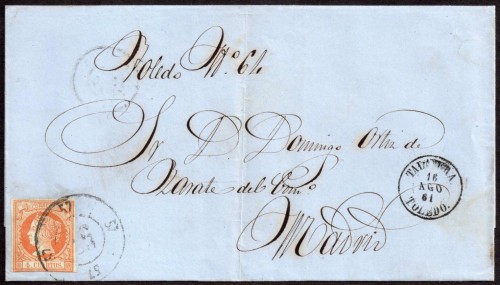 Toledo Nº 64
Sr D Domingo Ortiz de
Zarate del Comº
Madrid
TALAVERA.
16
AGO
61
TOLEDO.
4 CUARTOS.
57
57
57